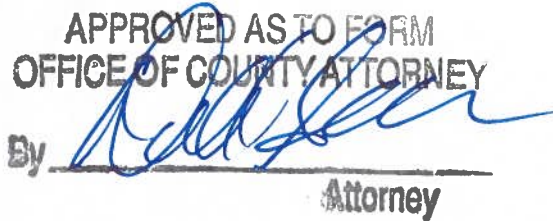 APPROVED AS TO FORM
OFFICE OF COUNTY ATTORNEY
By
Attorney